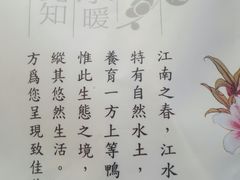 江南之春，江水
特有自然水土，
養育一方上等鴨
惟此生態之境，
縱其悠然生活。
方爲您呈現致佳
知
暖